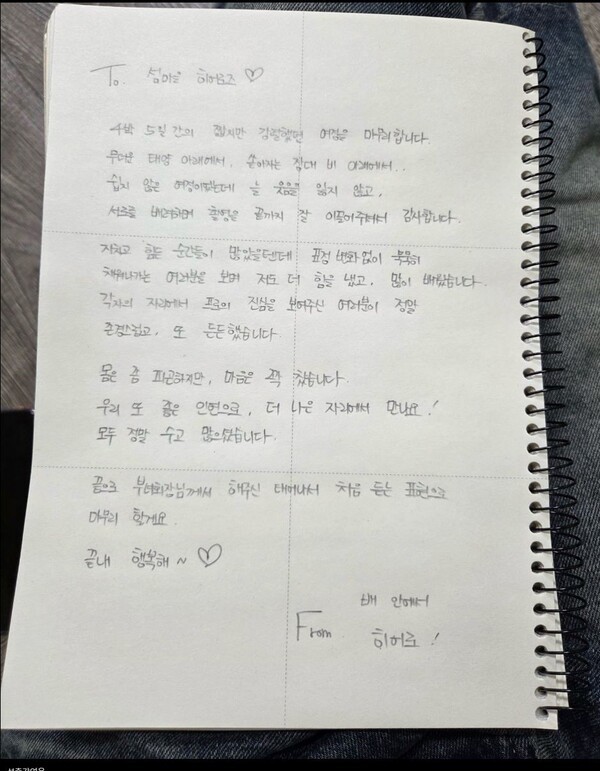 To. 섬마을 히어로즈 ♡
4박 5일간의 짧지만 강렬했던 여정을 마무리합니다.
무더운 태양 아래에서, 쏟아지는 장대비 아래에서..
쉽지 않은 여정이었는데 늘 웃음을 잃지 않고,
서로를 배려하며 촬영을 끝까지 잘 이끌어주셔서 감사합니다.
지치고 힘든 순간들이 많았을텐데 표정 변화 없이 묵묵히
채워나가는 여러분을 보며 저도 더 힘을 냈고, 많이 배웠습니다.
각자의 자리에서 프로의 진심을 보여주신 여러분이 정말
존경스럽고, 또 든든했습니다.
몸은 좀 피곤하지만, 마음은 꽉 찼습니다.
우리 또 좋은 인연으로, 더 나은 자리에서 만나요!
모두 정말 수고 많으셨습니다.
끝으로 부녀회장님께서 해주신 태어나서 처음 듣는 표현으로
마무리 할게요.
끝내 행복해~ ♡
배 안에서
From 히어로!